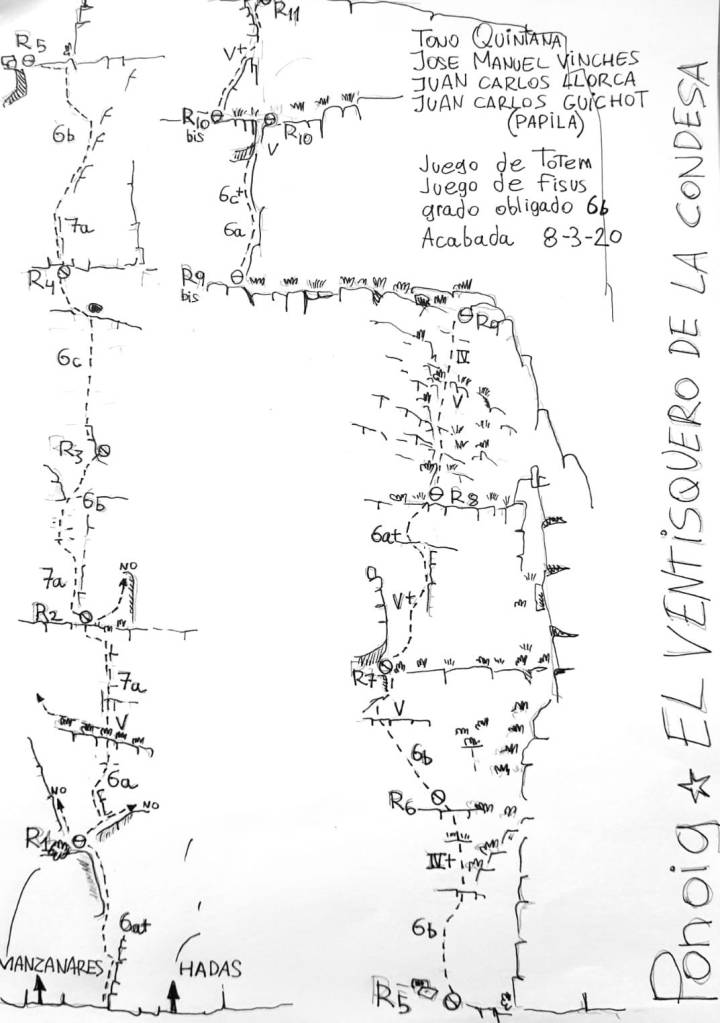 TONO QUINTANA
JOSE MANUEL VINCHES
JUAN CARLOS LLORCA
JUAN CARLOS GUICHOT
(PAPILA)
Juego de TOTEM
Juego de Fisus
grado obligado 6b
Acabada 8-3-20
Ponoig ☆ EL VENTISQUERO DE LA CONDESA
R5
6b
7a
R4
6c
R3
6b
7a
NO
R2
7a
V
6a
NO
NO
R1
6a+
MANZANARES
HADAS
R11
V+
R10
bis
R10
V
6c+
6a
R9
bis
R9
IV
V
R8
6a+
V+
R7
V
6b
R6
IV+
6b
R5